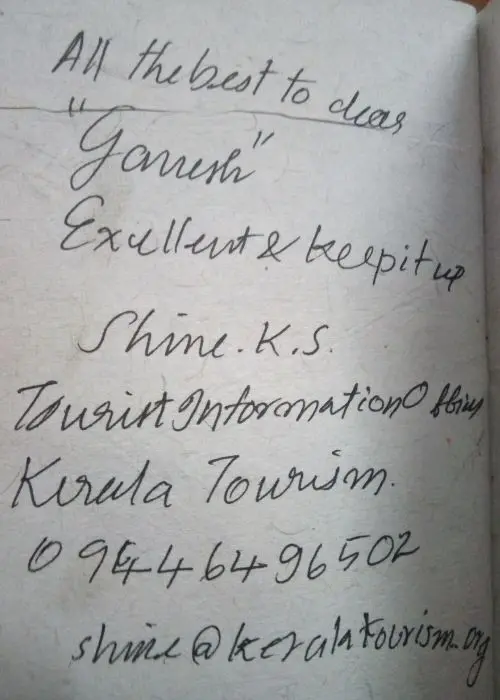 All the best to dear
"Ganesh"
Excellent & keep it up
Shine. K.S.
Tourist Information Officer
Kerala Tourism.
09446496502
shine@keralatourism.org